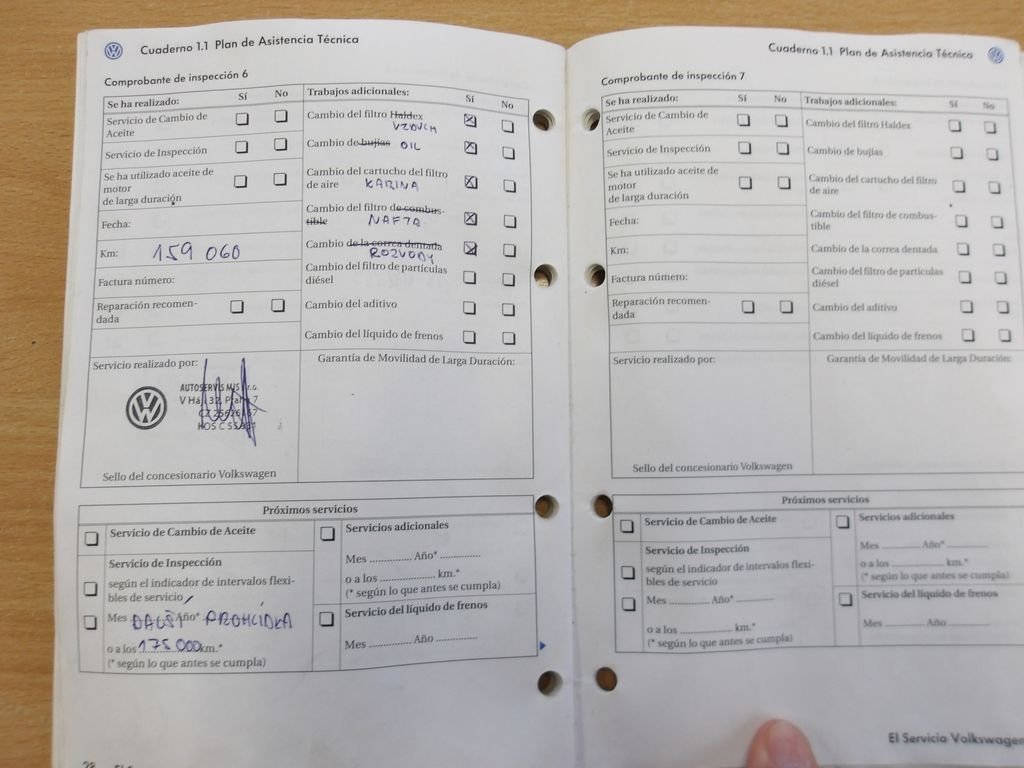 Cuaderno 1.1 Plan de Asistencia Técnica
Comprobante de inspección 6
Se ha realizado: Sí No
Servicio de Cambio de
Aceite
Servicio de Inspección
Se ha utilizado aceite de
motor
de larga duración
Fecha:
Km: 159 060
Factura número:
Reparación recomen-
dada
Trabajos adicionales: Sí No
Cambio del filtro Haldex
VZDUCH
Cambio de bujías OIL
Cambio del cartucho del filtro
de aire KABINA
Cambio del filtro de combus-
tible NAFTA
Cambio de la correa dentada
ROZVODY
Cambio del filtro de partículas
diésel
Cambio del aditivo
Cambio del líquido de frenos
Servicio realizado por:
AUTOSERVIS
Sello del concesionario Volkswagen
Garantía de Movilidad de Larga Duración:
Próximos servicios
Servicio de Cambio de Aceite
Servicio de Inspección
según el indicador de intervalos flexi-
bles de servicio
Mes DALŠÍ Año* PROHLÍDKA
o a los 175 000 km.*
(* según lo que antes se cumpla)
Servicios adicionales
Mes ............. Año* .............
o a los ......................... km.*
(* según lo que antes se cumpla)
Servicio del líquido de frenos
Mes ............. Año .............
Cuaderno 1.1 Plan de Asistencia Técnica
Comprobante de inspección 7
Se ha realizado: Sí No
Servicio de Cambio de
Aceite
Servicio de Inspección
Se ha utilizado aceite de
motor
de larga duración
Fecha:
Km:
Factura número:
Reparación recomen-
dada
Trabajos adicionales: Sí No
Cambio del filtro Haldex
Cambio de bujías
Cambio del cartucho del filtro
de aire
Cambio del filtro de combus-
tible
Cambio de la correa dentada
Cambio del filtro de partículas
diésel
Cambio del aditivo
Cambio del líquido de frenos
Servicio realizado por:
Sello del concesionario Volkswagen
Garantía de Movilidad de Larga Duración:
Próximos servicios
Servicio de Cambio de Aceite
Servicio de Inspección
según el indicador de intervalos flexi-
bles de servicio
Mes ............. Año* .............
o a los ......................... km.*
(* según lo que antes se cumpla)
Servicios adicionales
Mes ............. Año* .............
o a los ......................... km.*
(* según lo que antes se cumpla)
Servicio del líquido de frenos
Mes ............. Año .............
El Servicio Volkswagen